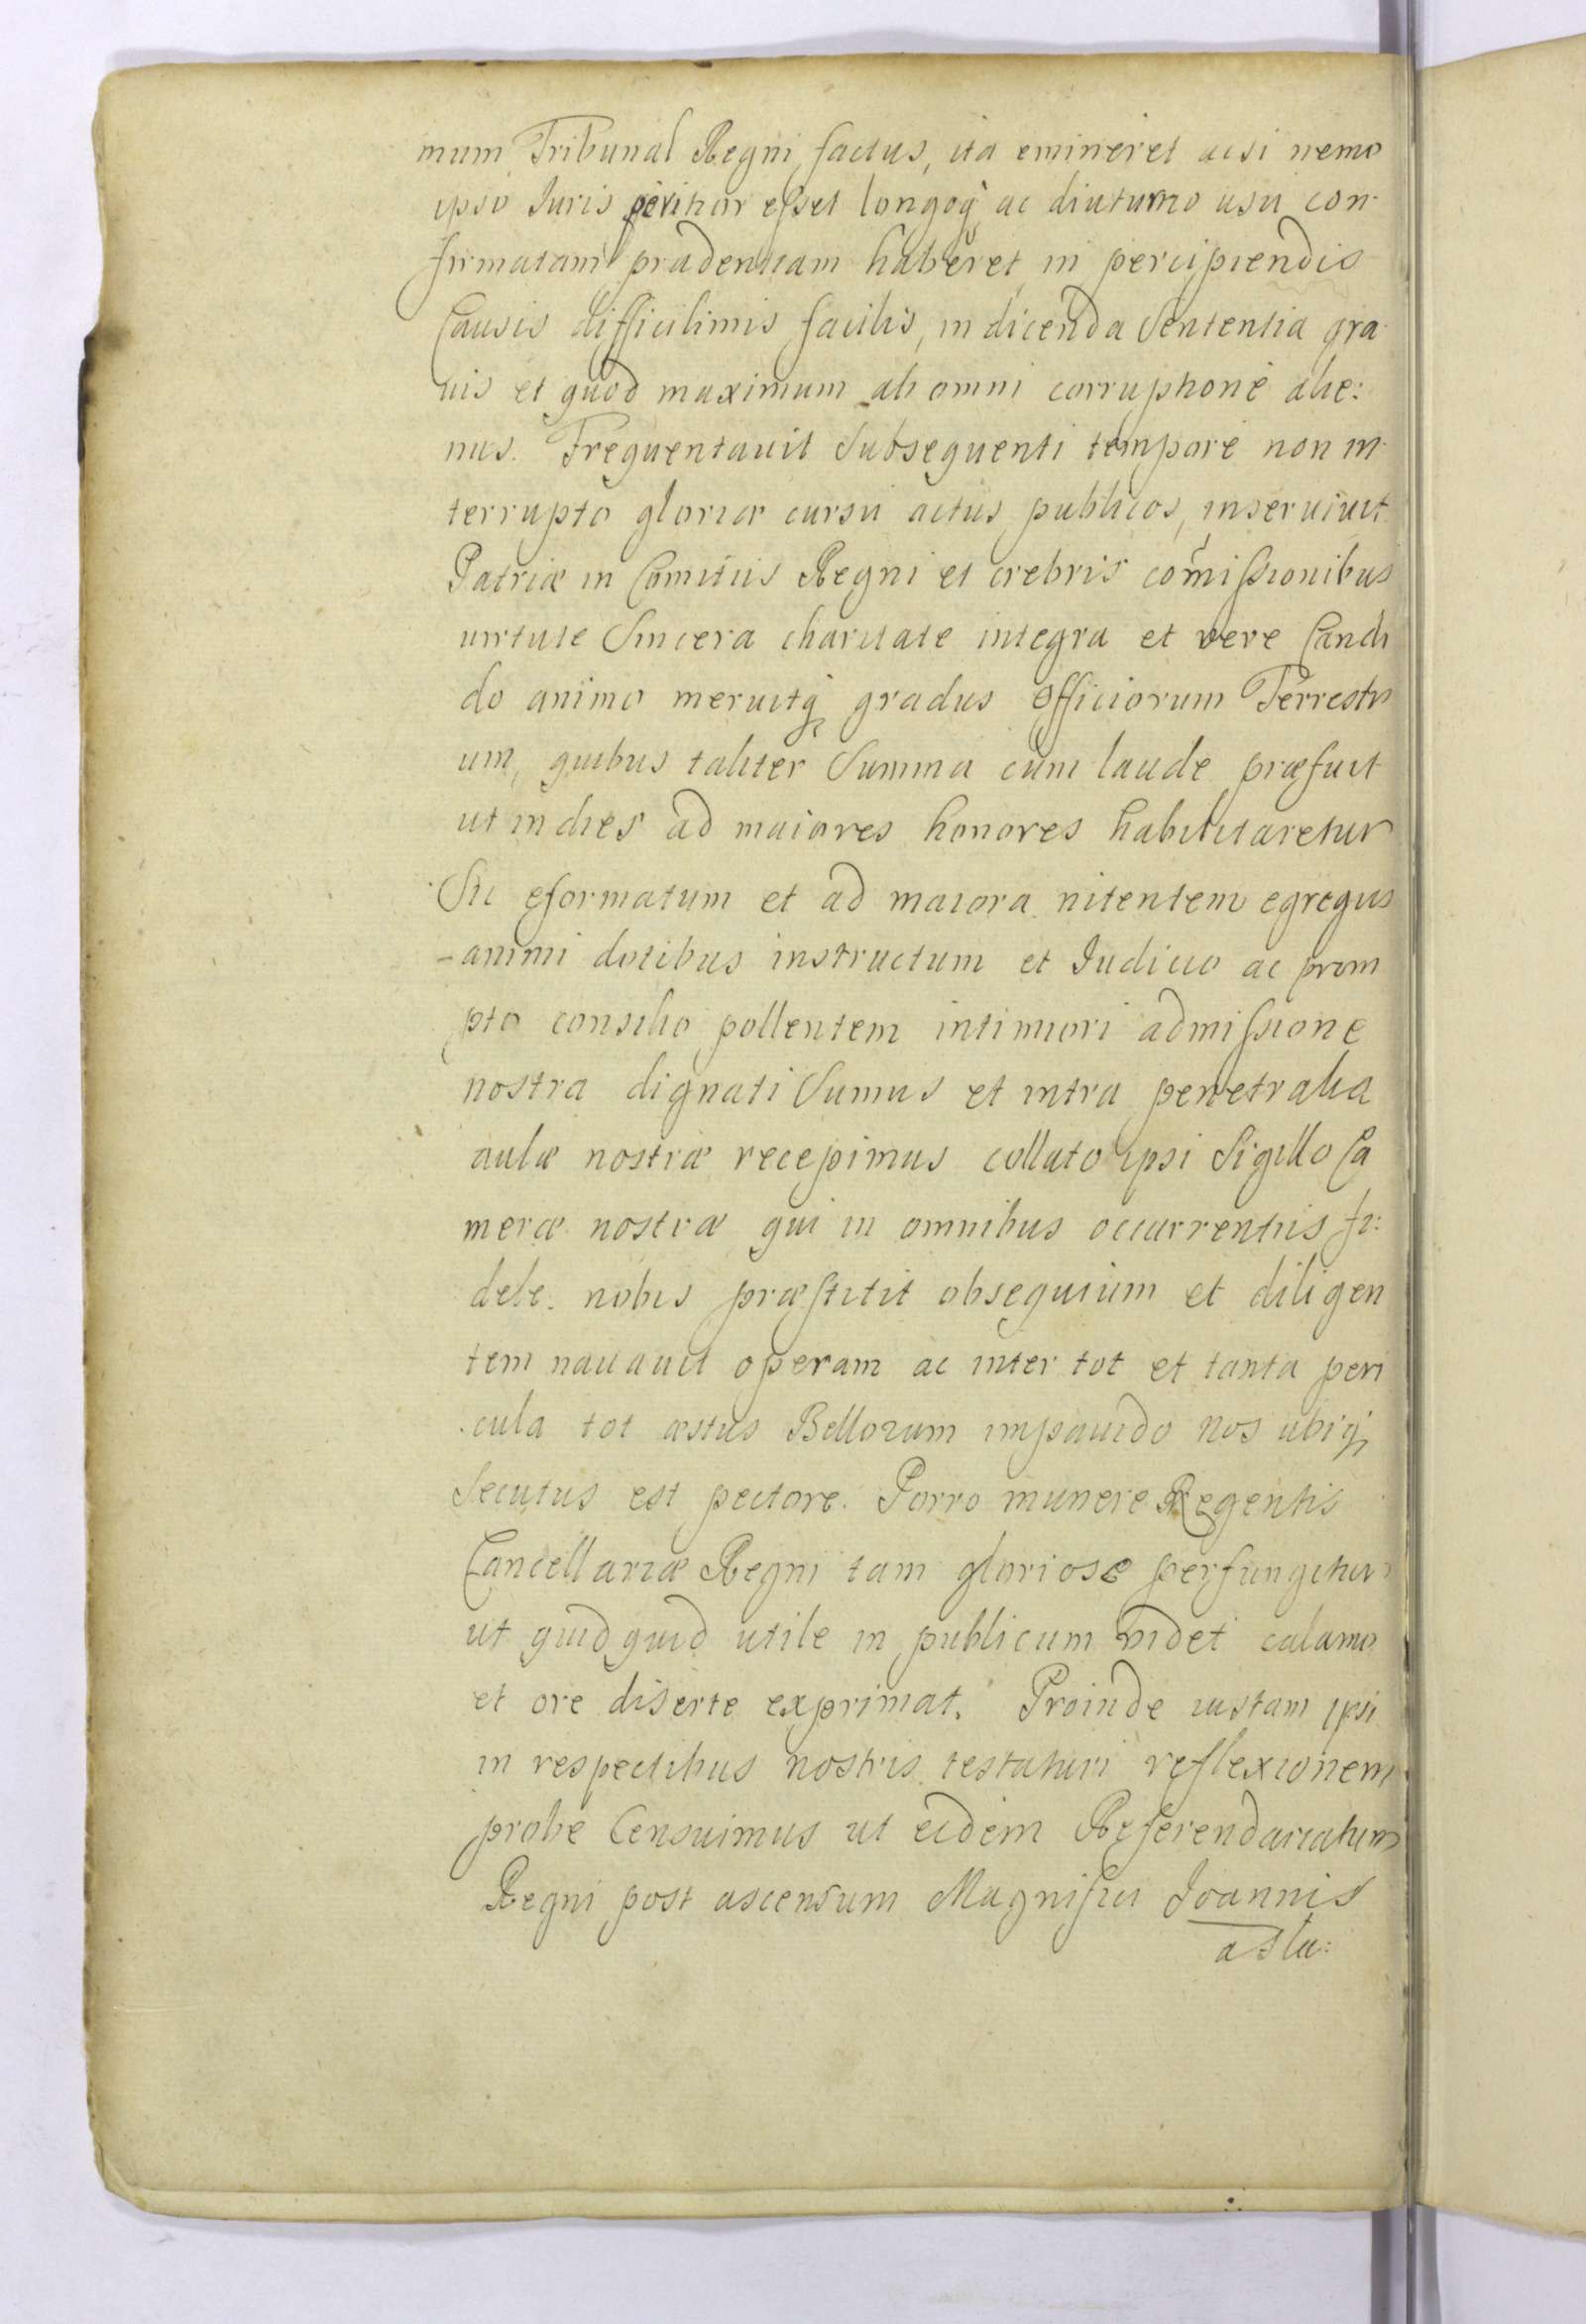 mum Tribunal Regni factus, ita emineret acsi nemo
ipso Iuris peritior esset longoq; ac diuturno usu con-
firmatam prudentiam haberet, in percipiendis
Causis difficilimis facilis, in dicenda Sententia gra-
uis et quod maximum ab omni corruptione alie:
nus. Frequentauit Subsequenti tempore non in-
terrupto gloriæ cursu actus publicos, inseruiuit
Patriæ in Comitiis Regni et crebris com̃issionibus
uirtute Sincera charitate integra et vere Candi
do animo meruitq; gradus Officiorum Terrestri
um, quibus taliter Summa cum laude præfuit
ut indies ad maiores honores habilitaretur
Sic eformatum et ad maiora nitentem egregiis
animi dotibus instructum et Iudicio ac prom
pto consilio pollentem intimiori admissione
nostra dignati Sumus et intra penetralia
aulæ nostræ recepimus collato ipsi Sigillo Ca
meræ nostræ qui in omnibus occurrentiis fi:
dele nobis præstitit obsequium et diligen
tem nauauit operam ac inter tot et tanta peri
cula tot æstus Bellorum impauido nos ubiq;
Secutus est pectore. Porro munere Regentis
Cancellariæ Regni tam gloriose perfungitur
ut quidquid utile in publicum uidet calamo
et ore diserte exprimat. Proinde iustam ipsi
in respectibus nostris testaturi reflexionem
probe Censuimus ut eidem Referendariatum
Regni post ascensum Magnifici Joannis